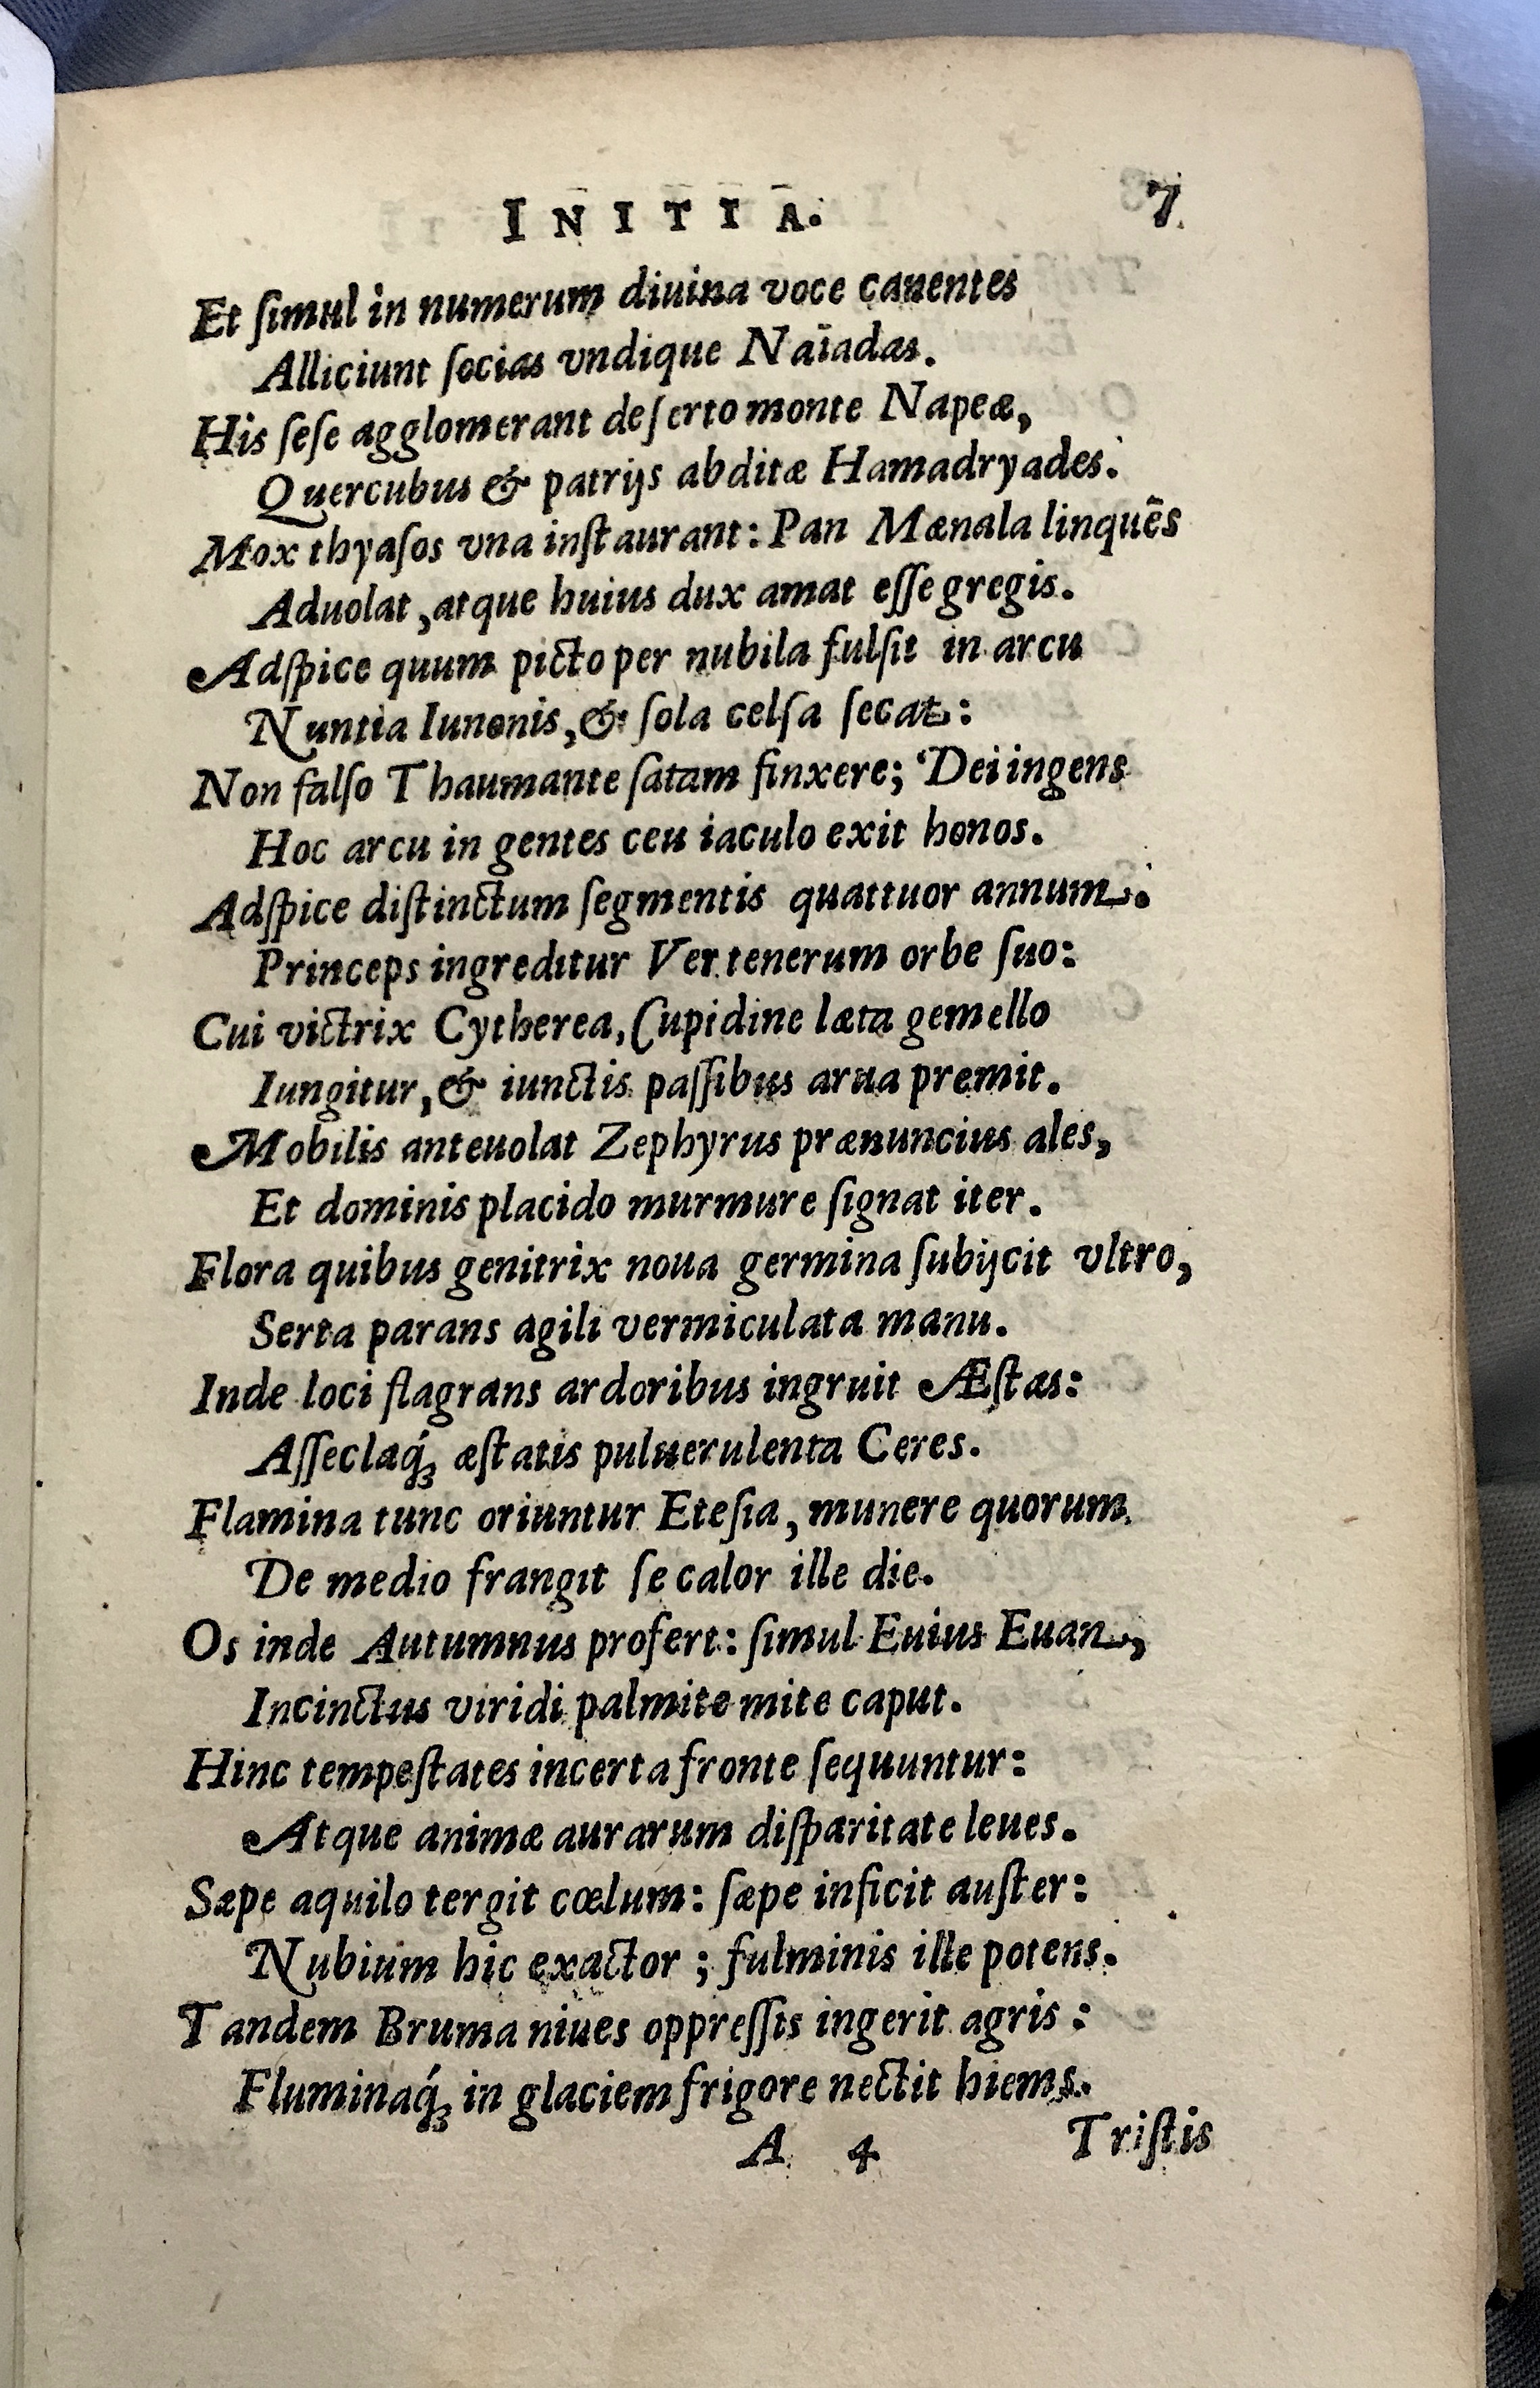 INITIA. 7
Et ſimul in numerum diuina voce canentes
Alliciunt ſocias vndique Naïadas.
His ſeſe agglomerant deſerto monte Napeæ,
Quercubus & patrijs abditæ Hamadryades.
Mox thyaſos vna inſtaurant: Pan Mænala linquẽs
Aduolat, atque huius dux amat eſſe gregis.
Adſpice quum picto per nubila fulſit in arcu
Nuntia Iunonis, & ſola celſa ſecat:
Non falſo Thaumante ſatam finxere; Dei ingens
Hoc arcu in gentes ceu iaculo exit honos.
Adſpice diſtinctum ſegmentis quattuor annum.
Princeps ingreditur Ver tenerum orbe ſuo:
Cui victrix Cytherea, Cupidine læta gemello
Iungitur, & iunctis paſſibus arua premit.
Mobilis anteuolat Zephyrus prænuncius ales,
Et dominis placido murmure ſignat iter.
Flora quibus genitrix noua germina ſubijcit vltro,
Serta parans agili vermiculata manu.
Inde loci flagrans ardoribus ingruit Æſtas:
Aſſeclaq́ꝫ æſtatis puluerulenta Ceres.
Flamina tunc oriuntur Eteſia, munere quorum
De medio frangit ſe calor ille die.
Os inde Autumnus profert: ſimul Euius Euan,
Incinctus viridi palmite mite caput.
Hinc tempeſtates incerta fronte ſequuntur:
Atque animæ aurarum diſparitate leues.
Sæpe aquilo tergit cœlum: ſæpe inficit auſter:
Nubium hic exactor ; fulminis ille potens.
Tandem Bruma niues oppreſſis ingerit agris :
Fluminaq́ꝫ in glaciem frigore nectit hiems.
A 4 Triſtis